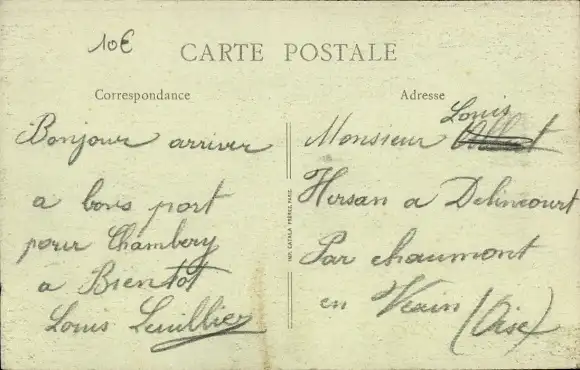 10€
CARTE POSTALE
Correspondance
Bonjour arriver
a bons port
pour Chambery
a Bientot
Louis Leuillier
IMP. CATALA FRÈRES, PARIS.
Adresse
Louis
Monsieur Albert
Hersan a Delincourt
Par chaumont
en Vexin (Oise)